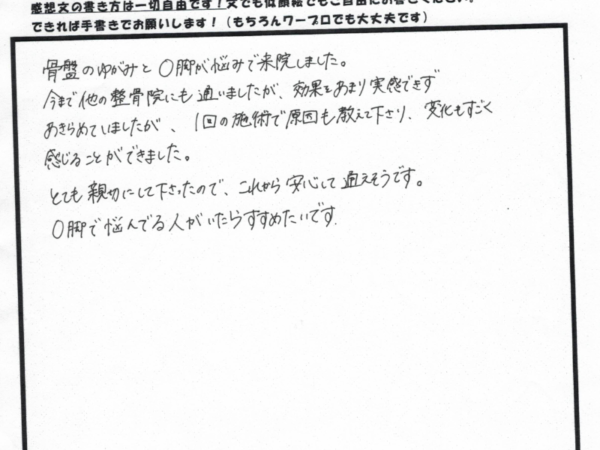 感想文の書き方は一切自由です!文でも似顔絵でもご自由にお書きください。
できれば手書きでお願いします!(もちろんワープロでも大丈夫です)
骨盤のゆがみとO脚が悩みで来院しました。
今まで他の整骨院にも通いましたが、効果をあまり実感できず
あきらめていましたが、1回の施術で原因も教えて下さり、変化もすごく
感じることができました。
とても親切にして下さったので、これから安心して通えそうです。
O脚で悩んでる人がいたらすすめたいです.